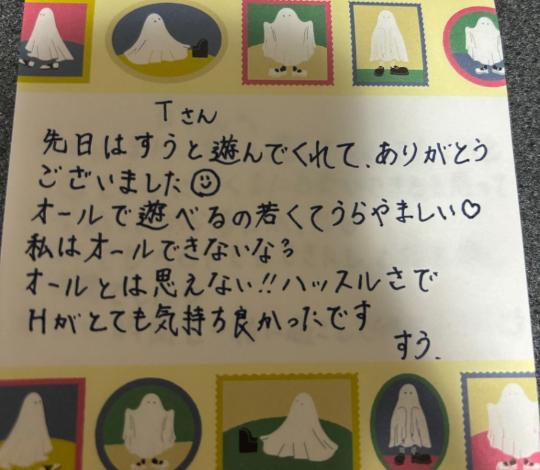 Tさん
先日はすうと遊んでくれて、ありがとう
ございました☺
オールで遊べるの若くてうらやましい♡
私はオールできないなぁ
オールとは思えない!!ハッスルさで
Hがとても気持ち良かったです
すう.